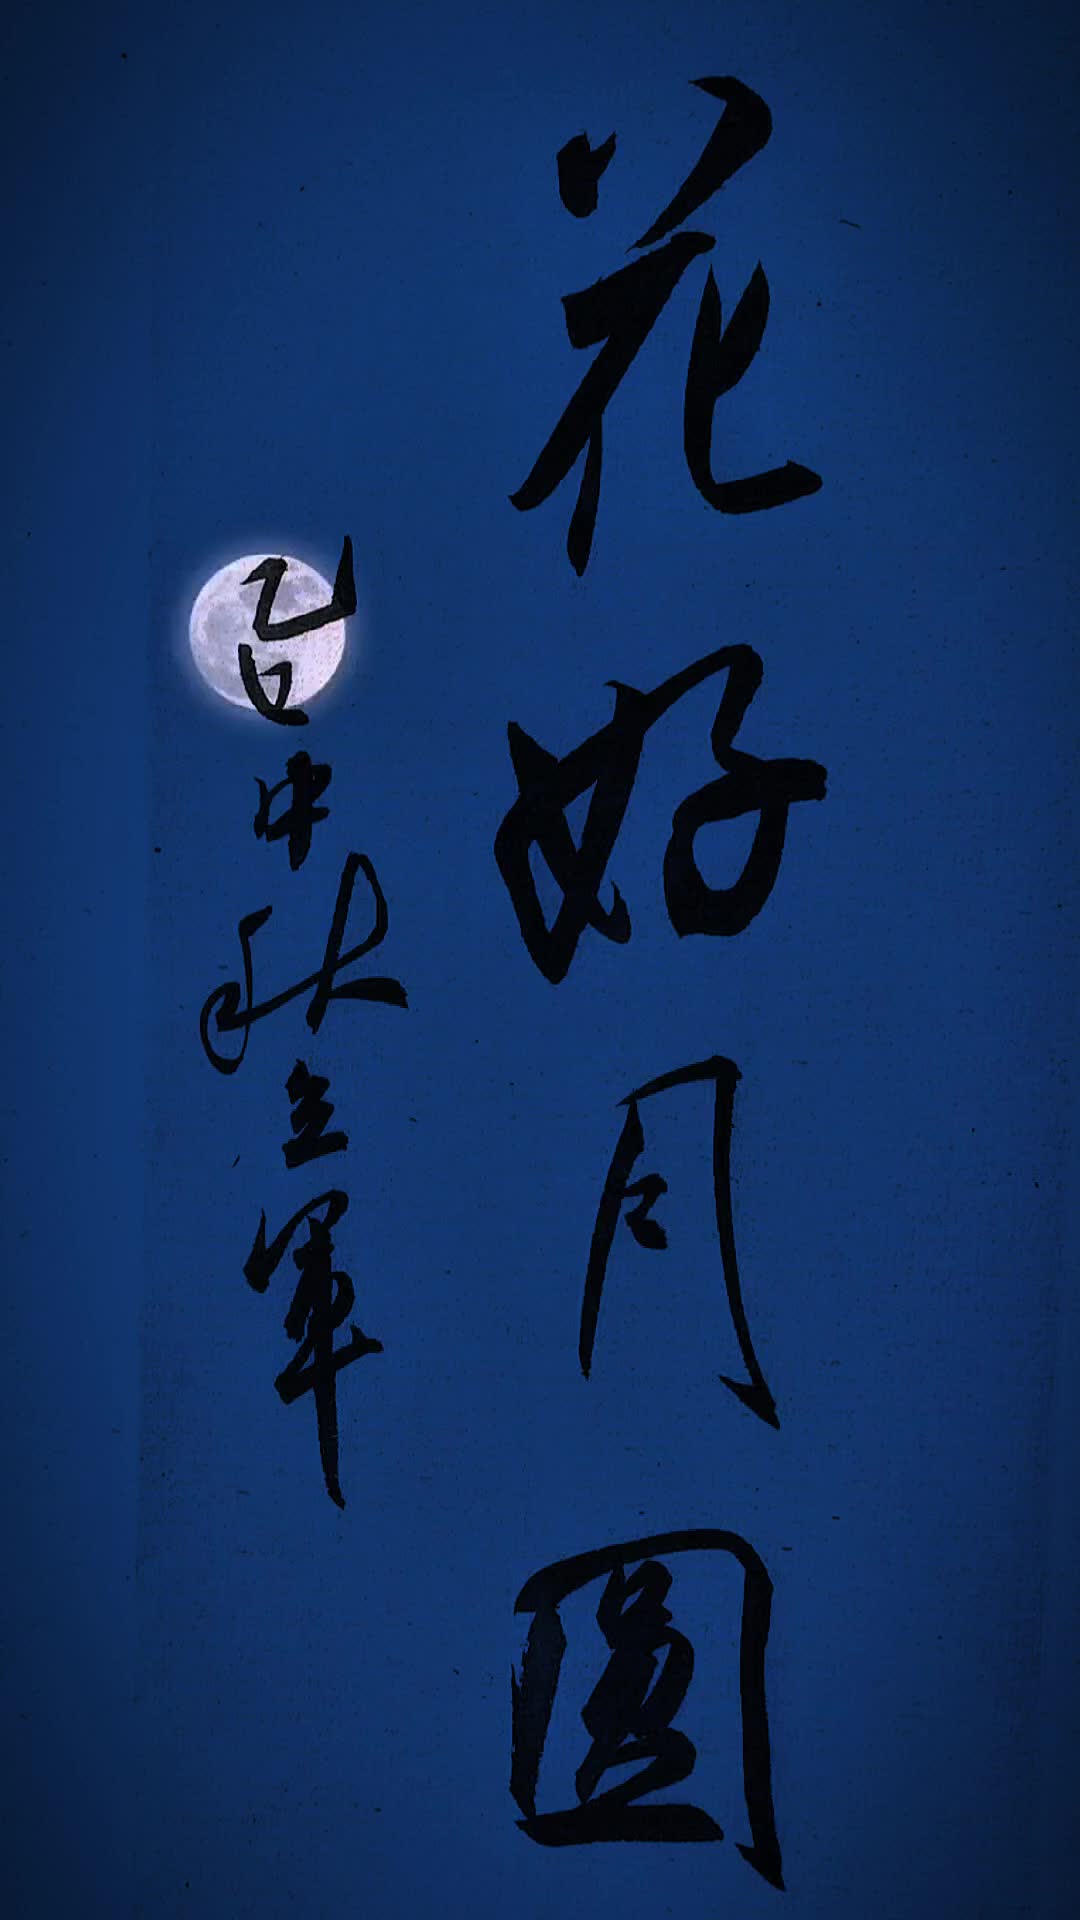 花好月圓
乙巳中秋立軍